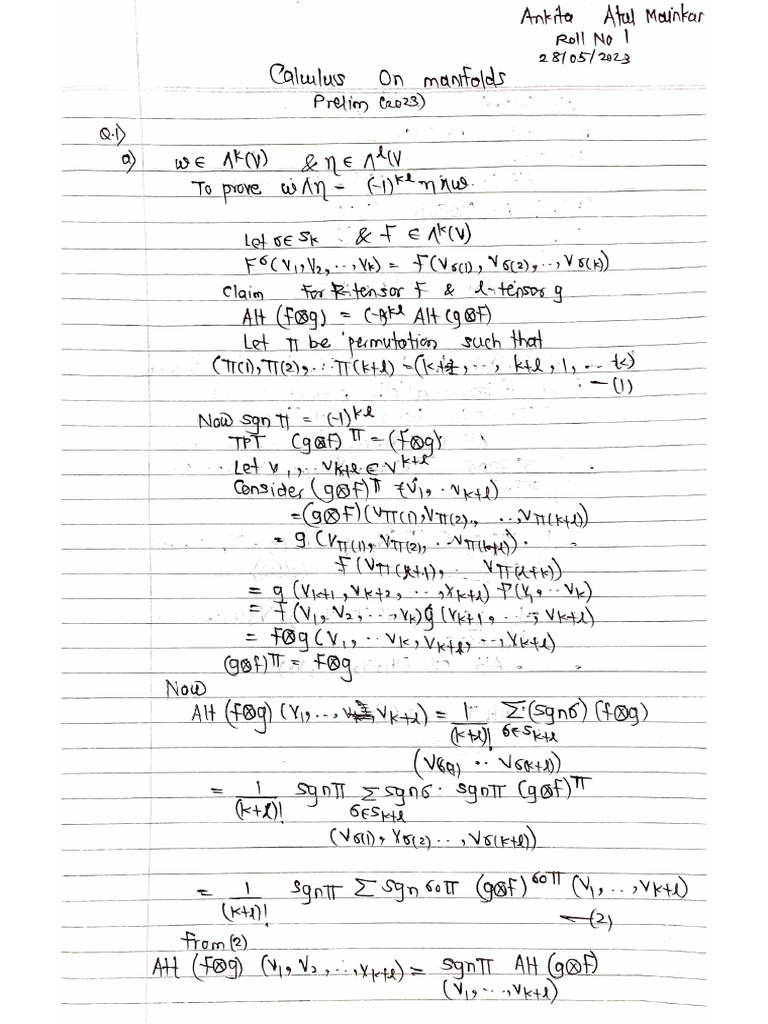 Ankita Atul Mainkar
Roll No 1
28/05/2023
Calculus On manifolds
Prelim (2023)
Q.1)
a) w ∈ Λᵏ(V) & η ∈ Λˡ(V
To prove w∧η = (-1)ᵏˡ η∧w.
Let σ∈Sₖ & f ∈ Λᵏ(V)
F^σ(v₁,v₂,..,vₖ) = f(v_σ(1), v_σ(2),.., v_σ(k))
Claim For k-tensor f & l-tensor g
Alt (f⊗g) = (-1)ᵏˡ Alt (g⊗f)
Let π be permutation such that
(π(1), π(2), ... π(k+l)) = (k+1, .., k+l, 1, .. k)
— (1)
Now sgn π = (-1)ᵏˡ
TPT (g⊗f)^π = (f⊗g)
Let v₁,.. v_k+l ∈ V^k+l
Consider (g⊗f)^π (v₁, .. v_k+l)
= (g⊗f)(v_π(1), v_π(2)., .., v_π(k+l))
= g (v_π(1), v_π(2), .. v_π(l)).
f (v_π(l+1), .. v_π(l+k))
= g (v_k+1, v_k+2, .., v_k+l) f(v₁, .. vₖ)
= f(v₁, v₂, .., vₖ) g (v_k+1, .., v_k+l)
= f⊗g (v₁, .. vₖ, v_k+1, .., v_k+l)
(g⊗f)^π = f⊗g
Now
Alt (f⊗g) (v₁,.., v_k+l) = 1/(k+l)! Σ_σ∈S_k+l (sgnσ) (f⊗g)
(v_σ(1) .. v_σ(k+l))
= 1/(k+l)! sgnπ Σ_σ∈S_k+l sgnσ · sgnπ (g⊗f)^π
(v_σ(1), v_σ(2) .., v_σ(k+l))
= 1/(k+l)! sgnπ Σ sgn σoπ (g⊗f)^σoπ (v₁, .., v_k+l)
— (2)
from (2)
Alt (f⊗g) (v₁, v₂, .., v_k+l) = sgnπ Alt (g⊗f)
(v₁, .., v_k+l)